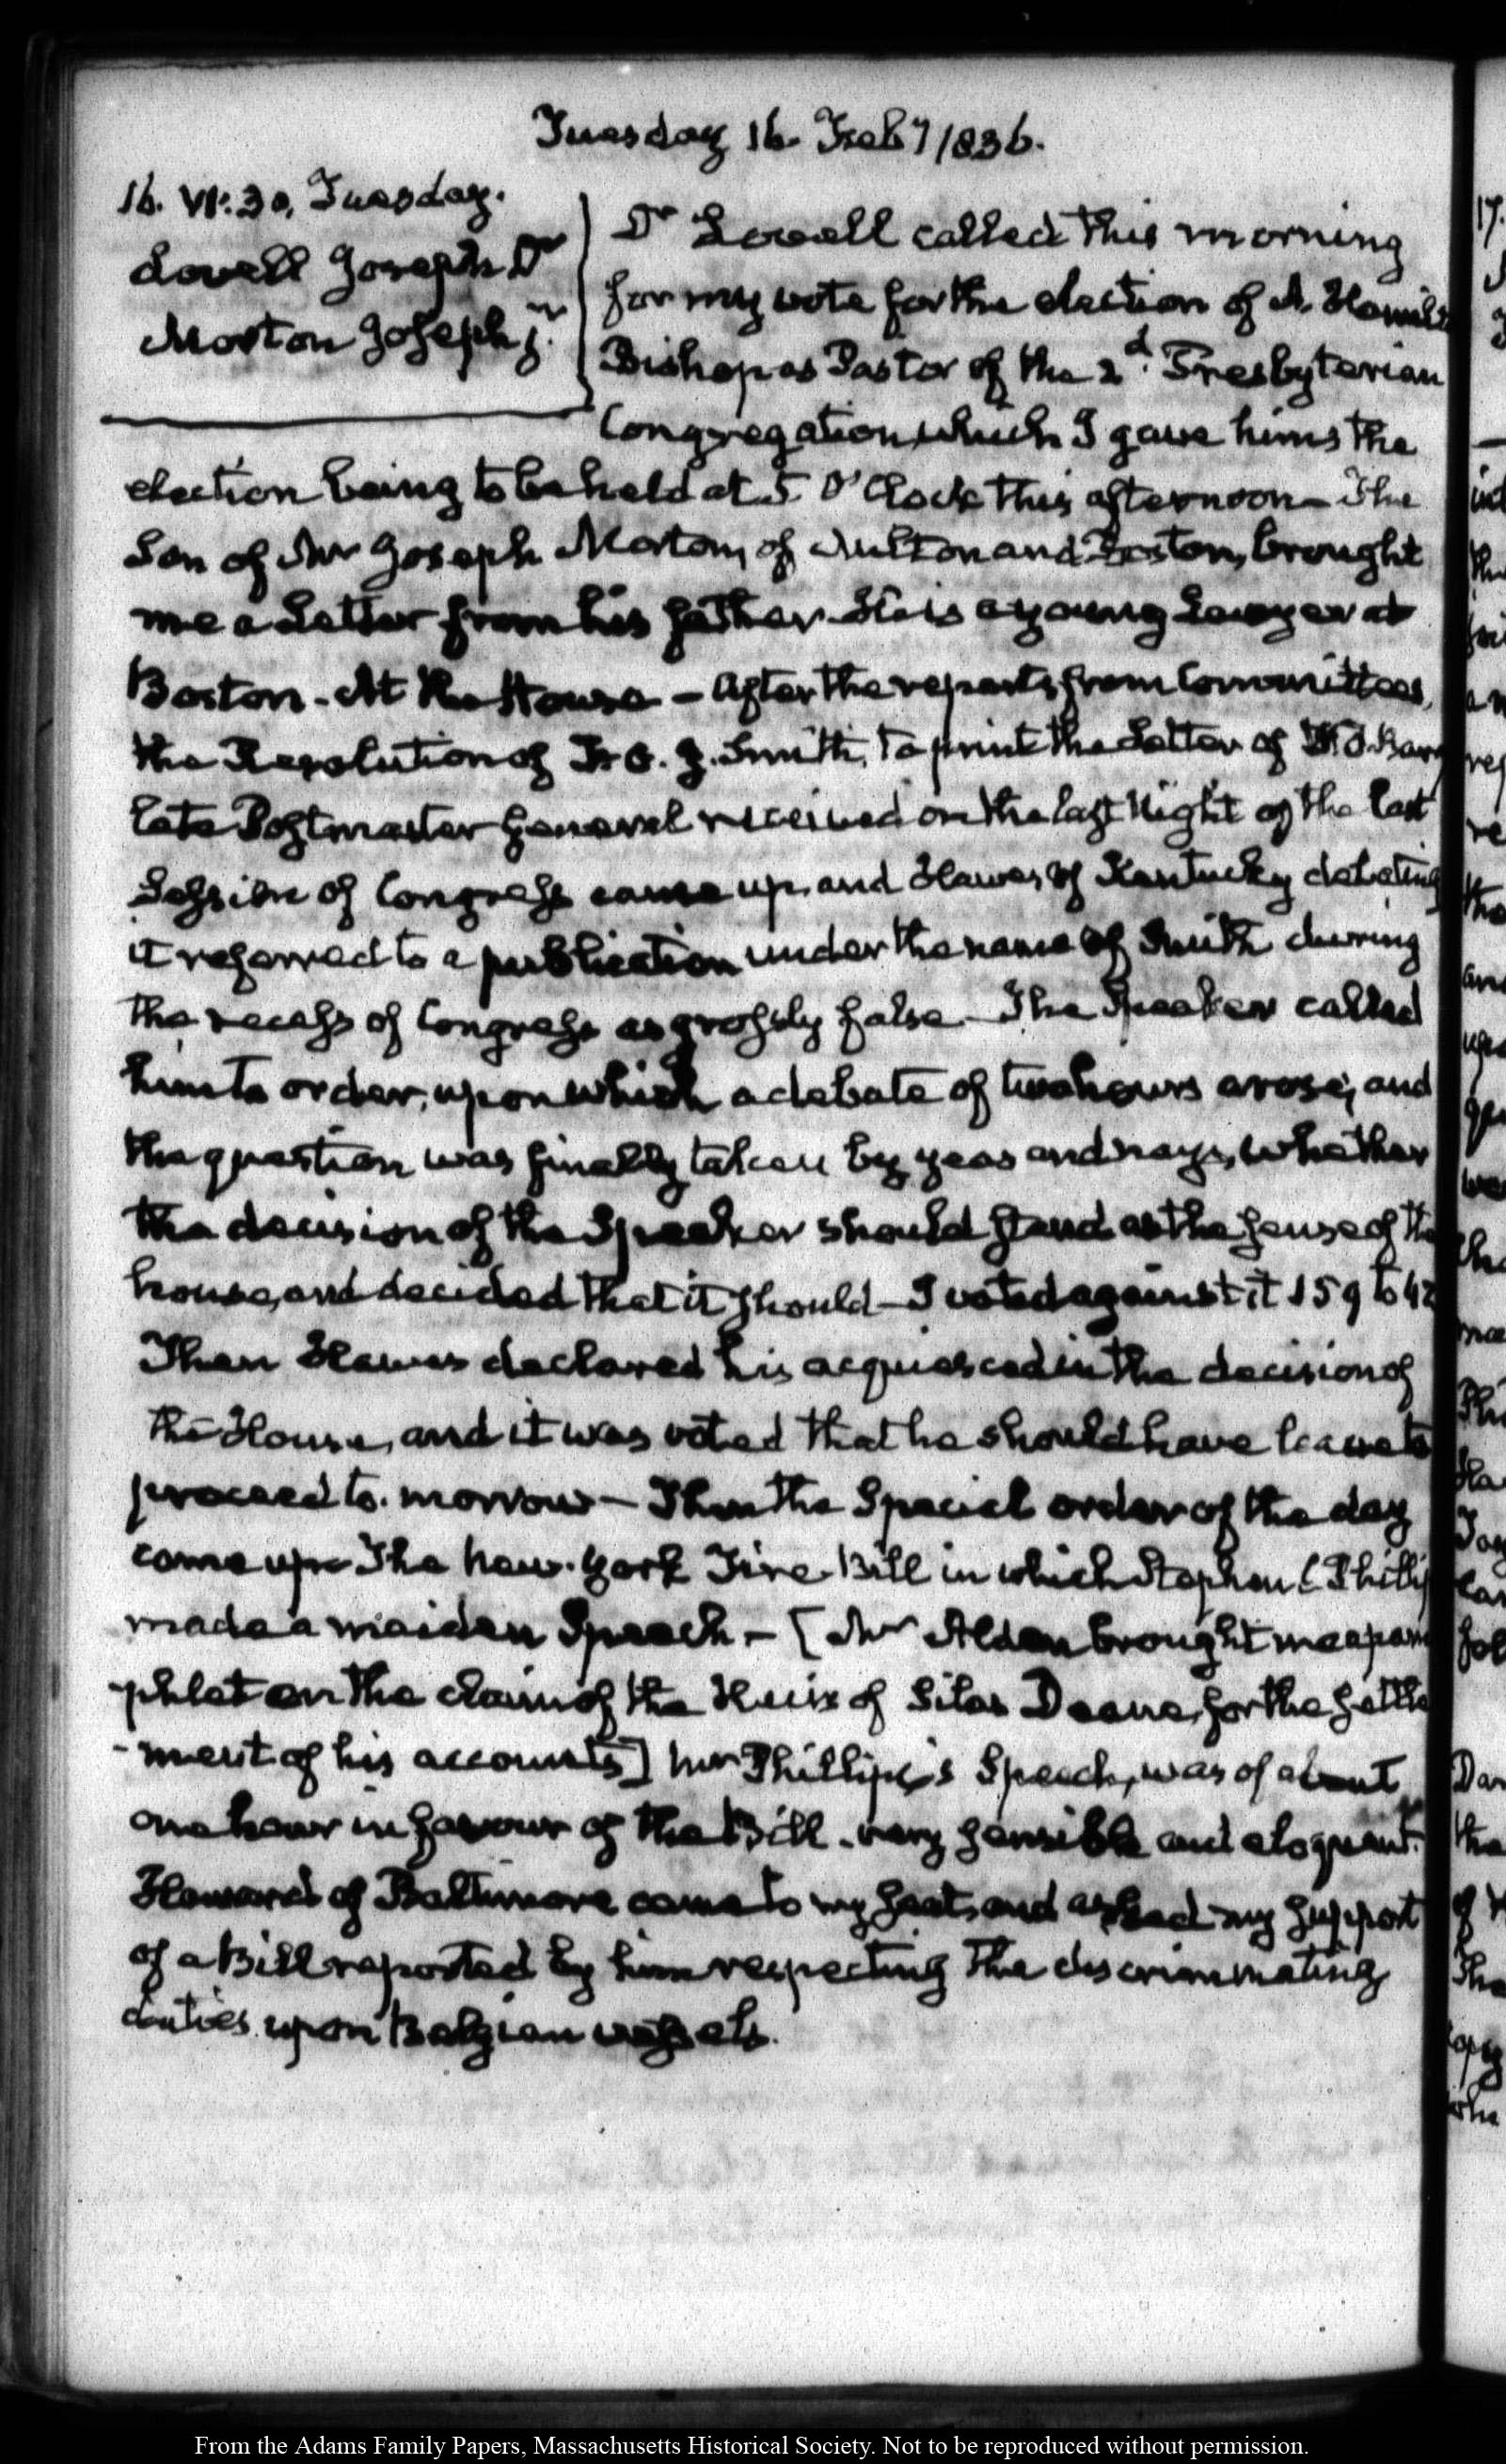 Tuesday 16. Feby 1836.
16. VI:30. Tuesday.
Lovell Joseph Dr
Morton Joseph jr
Dr Lovell called this morning
for my vote for the election of A. Hamil
Bishop as Pastor of the 2d. Presbyterian
Congregation, which I gave him; the
election being to be held at 5 O'Clock this afternoon— The
Son of Mr Joseph Morton, of Milton and Boston, brought
me a Letter from his father. He is a young Lawyer at
Boston. At the House — After the reports from Committees,
the Resolution of Fr. O. J. Smith, to print the Letter of W. T. Barry
late Postmaster General received on the last Night of the last
Session of Congress came up, and Hawes of Kentucky debating
it referred to a publication under the name of Smith during
the recess of Congress as grossly false— The Speaker called
him to order, upon which a debate of two hours arose, and
the question was finally taken by yeas and nays, whether
the decision of the Speaker should stand as the sense of the
house, and decided that it should— I voted against it 159 to 42
Then Hawes declared his acquiesced in the decision of
the House, and it was voted that he should have leave to
proceed to-morrow — Then the Special order of the day
came up— The New-York Fire Bill in which Stephen C Philli
made a maiden Speech — [Mr Alden brought me a pam
-phlet on the claim of the Heirs of Silas Deane, for the settle
-ment of his accounts] Mr Phillips's Speech, was of about
one hour in favour of the Bill. very sensible and eloquent.
Howard of Baltimore came to my seat, and asked my support
of a Bill reported by him respecting the discriminating
duties upon Belgian vessels.
From the Adams Family Papers, Massachusetts Historical Society. Not to be reproduced without permission.